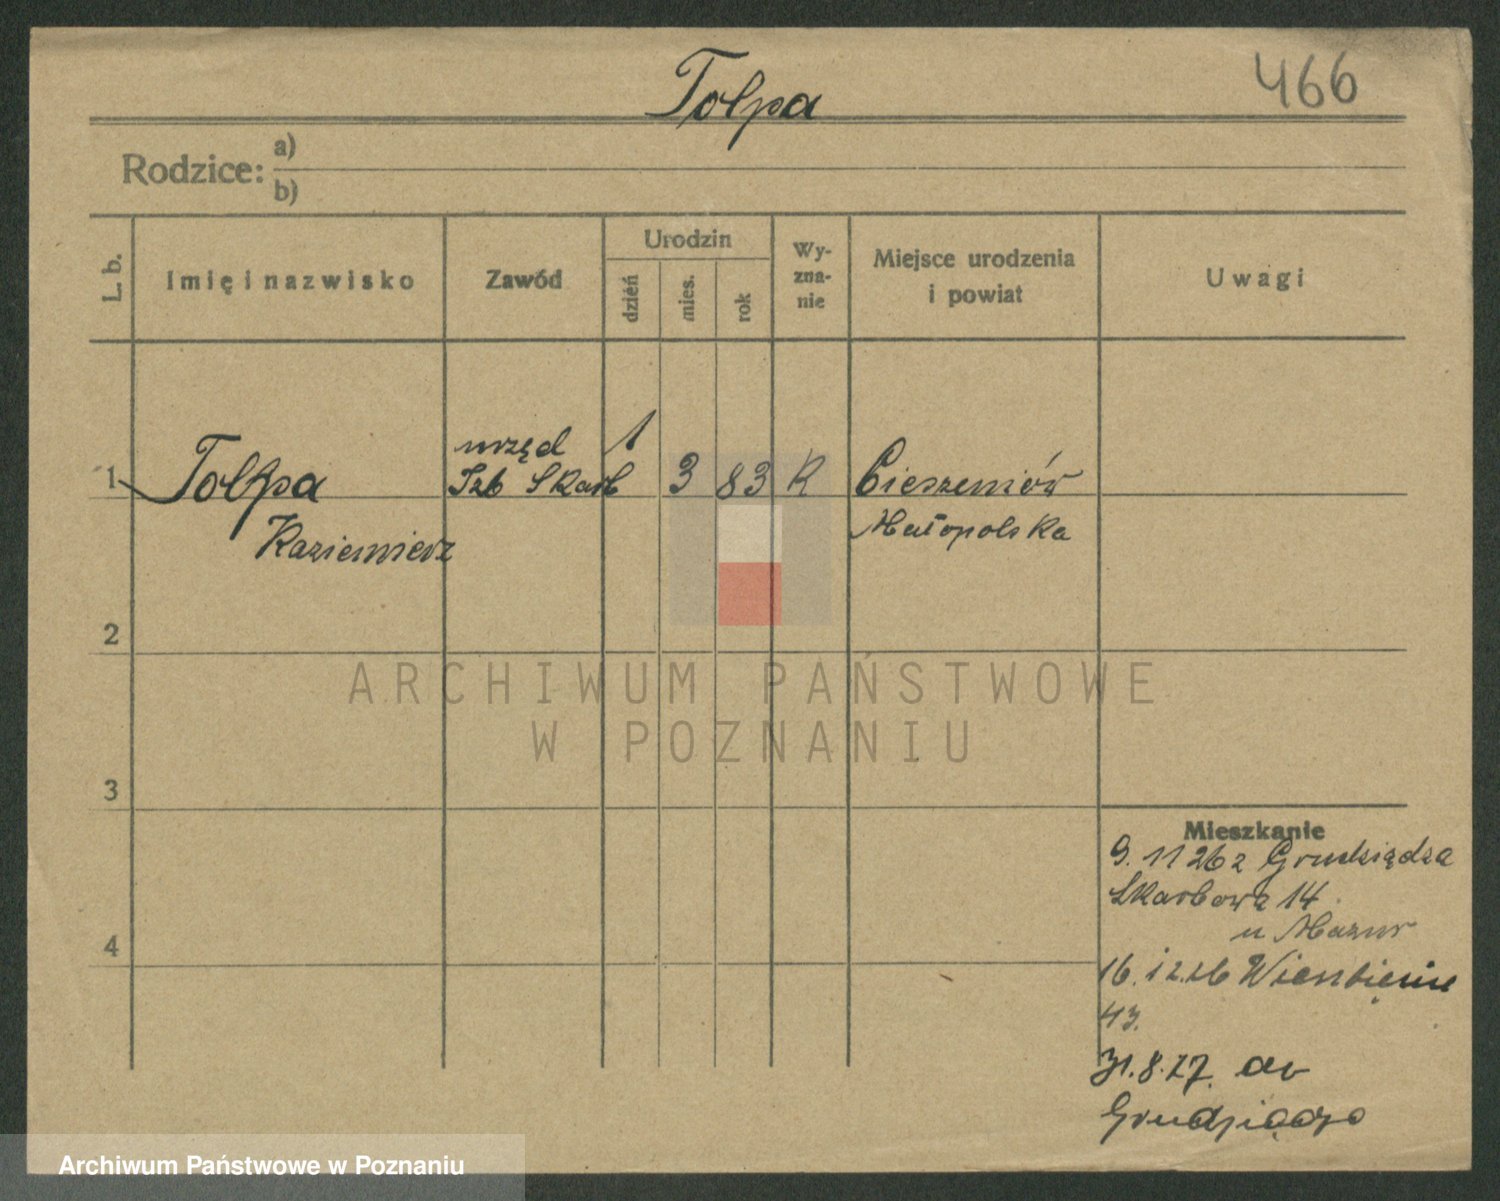 Tolpa
466
Rodzice: a)
b)
L. b.
Imię i nazwisko
Zawód
Urodzin
dzień
mies.
rok
Wy-
zna-
nie
Miejsce urodzenia
i powiat
Uwagi
1 Tolpa
Kazimierz
urzęd
Izb Skarb
1
3
83
K
Cieszeniów
Małopolska
2
3
4
Mieszkanie
9. 11 26 z Grudziądza
Skarbowa 14
u Mazur
16. 12.26 Wierzbięcice
43.
31.8.27. do
Grudziądza
ARCHIWUM PAŃSTWOWE
W POZNANIU
Archiwum Państwowe w Poznaniu